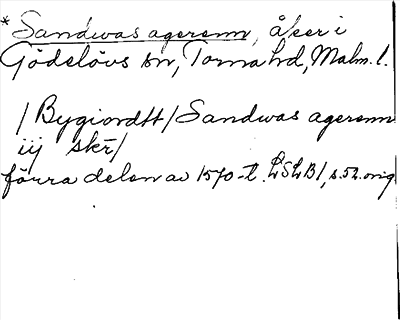 *Sandwas agerenn, åker i
Gödelövs sn, Torna hd, Malm. l.
/Bygiordtt/Sandwas agerenn
iij skr/
förra delen av 1570-t. LSLB1, s. 52. orig